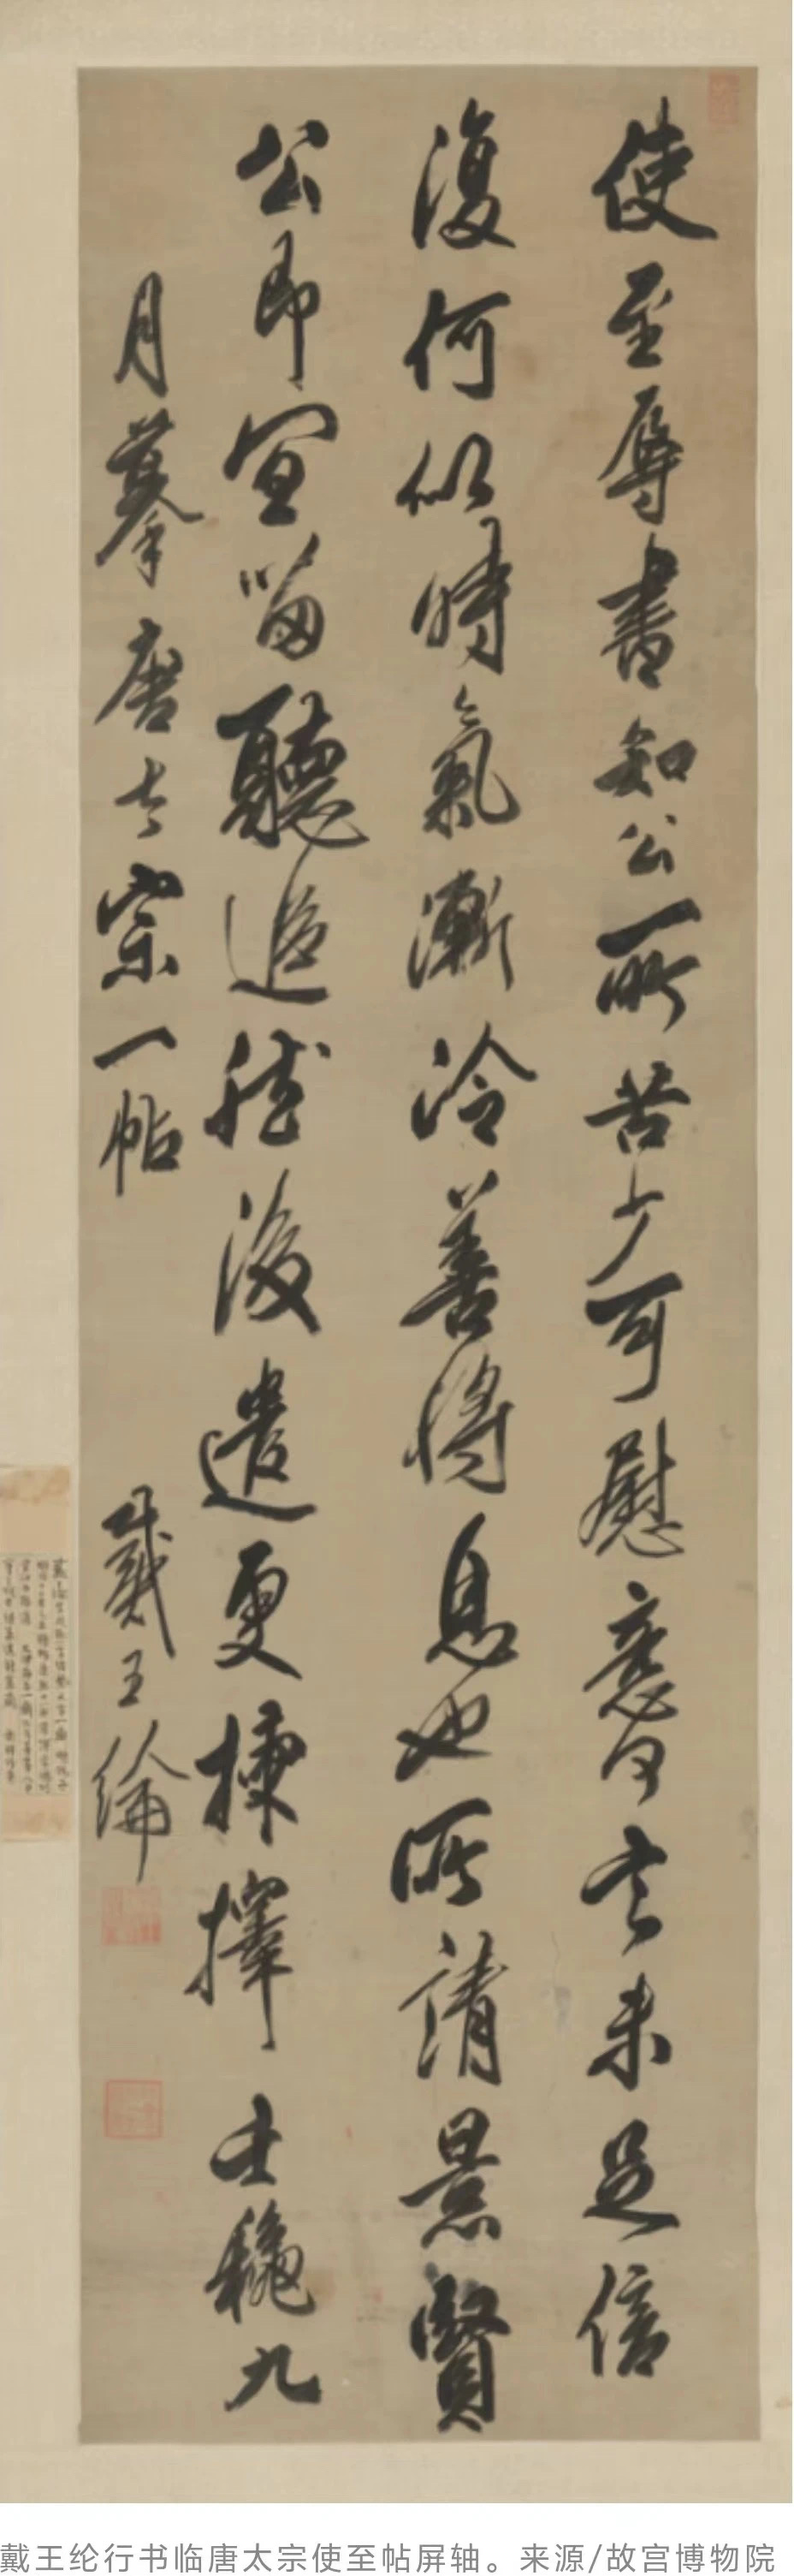 使至辱書知公所苦少可慰意何言未足信
復何似時氣漸冷善將息也所請景賢
公即宜留聽追然後遣更揀擇壬穐九
月摹唐太宗一帖
戴王綸
戴王纶行书临唐太宗使至帖屏轴。来源/故宫博物院